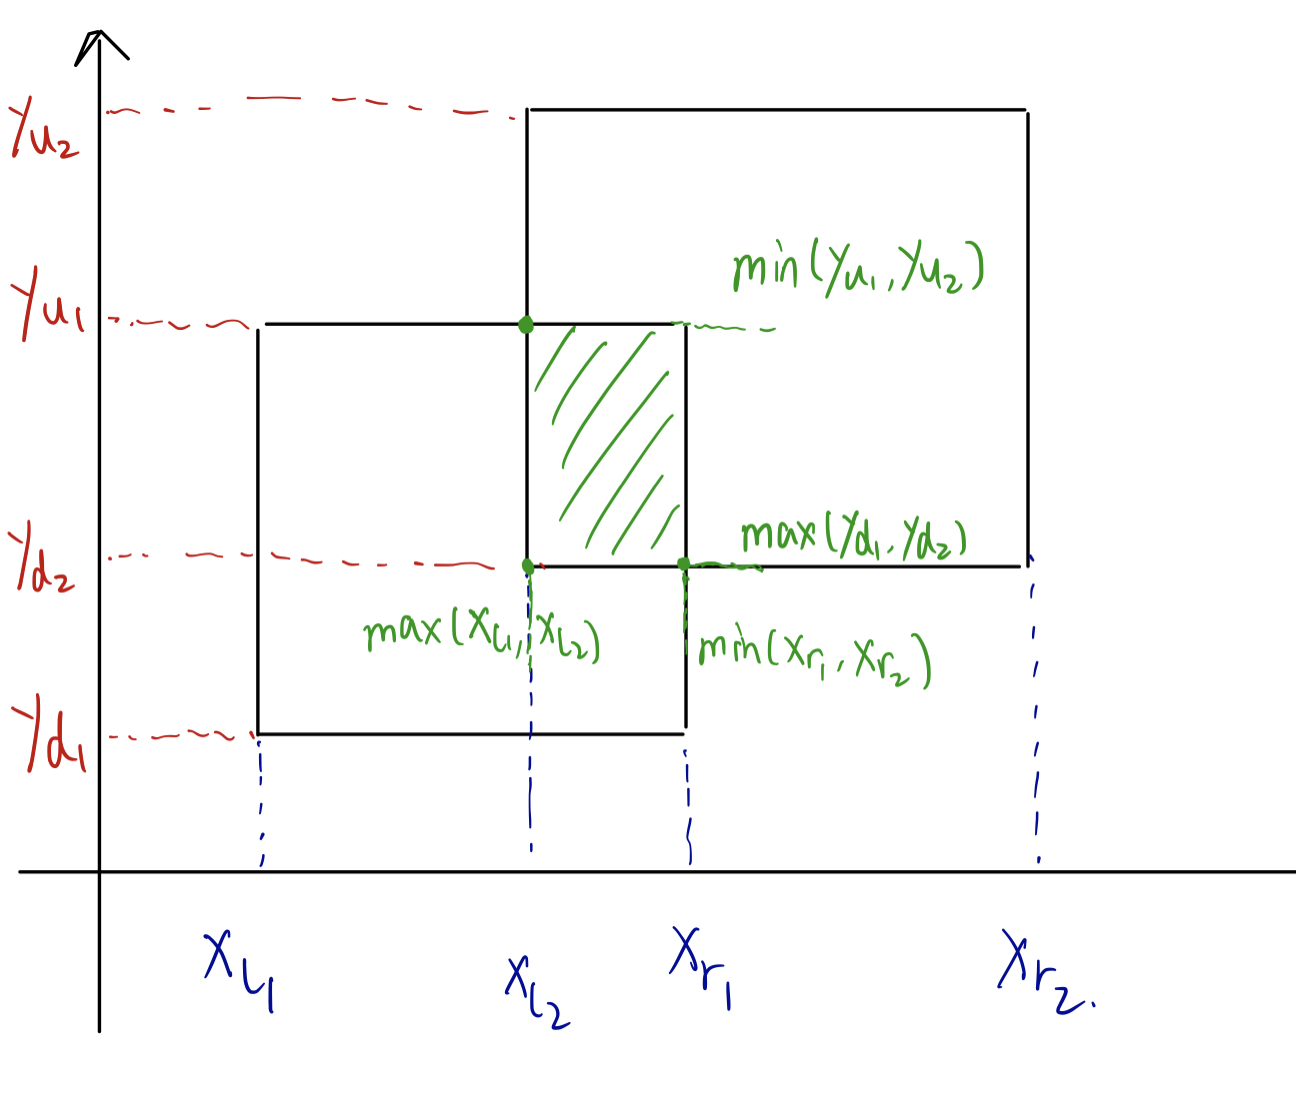 yu2
min(yu1, yu2)
yu1
max(yd1, yd2)
yd2
max(xl1, xl2)
min(xr1, xr2)
yd1
xl1
xl2
xr1
xr2.